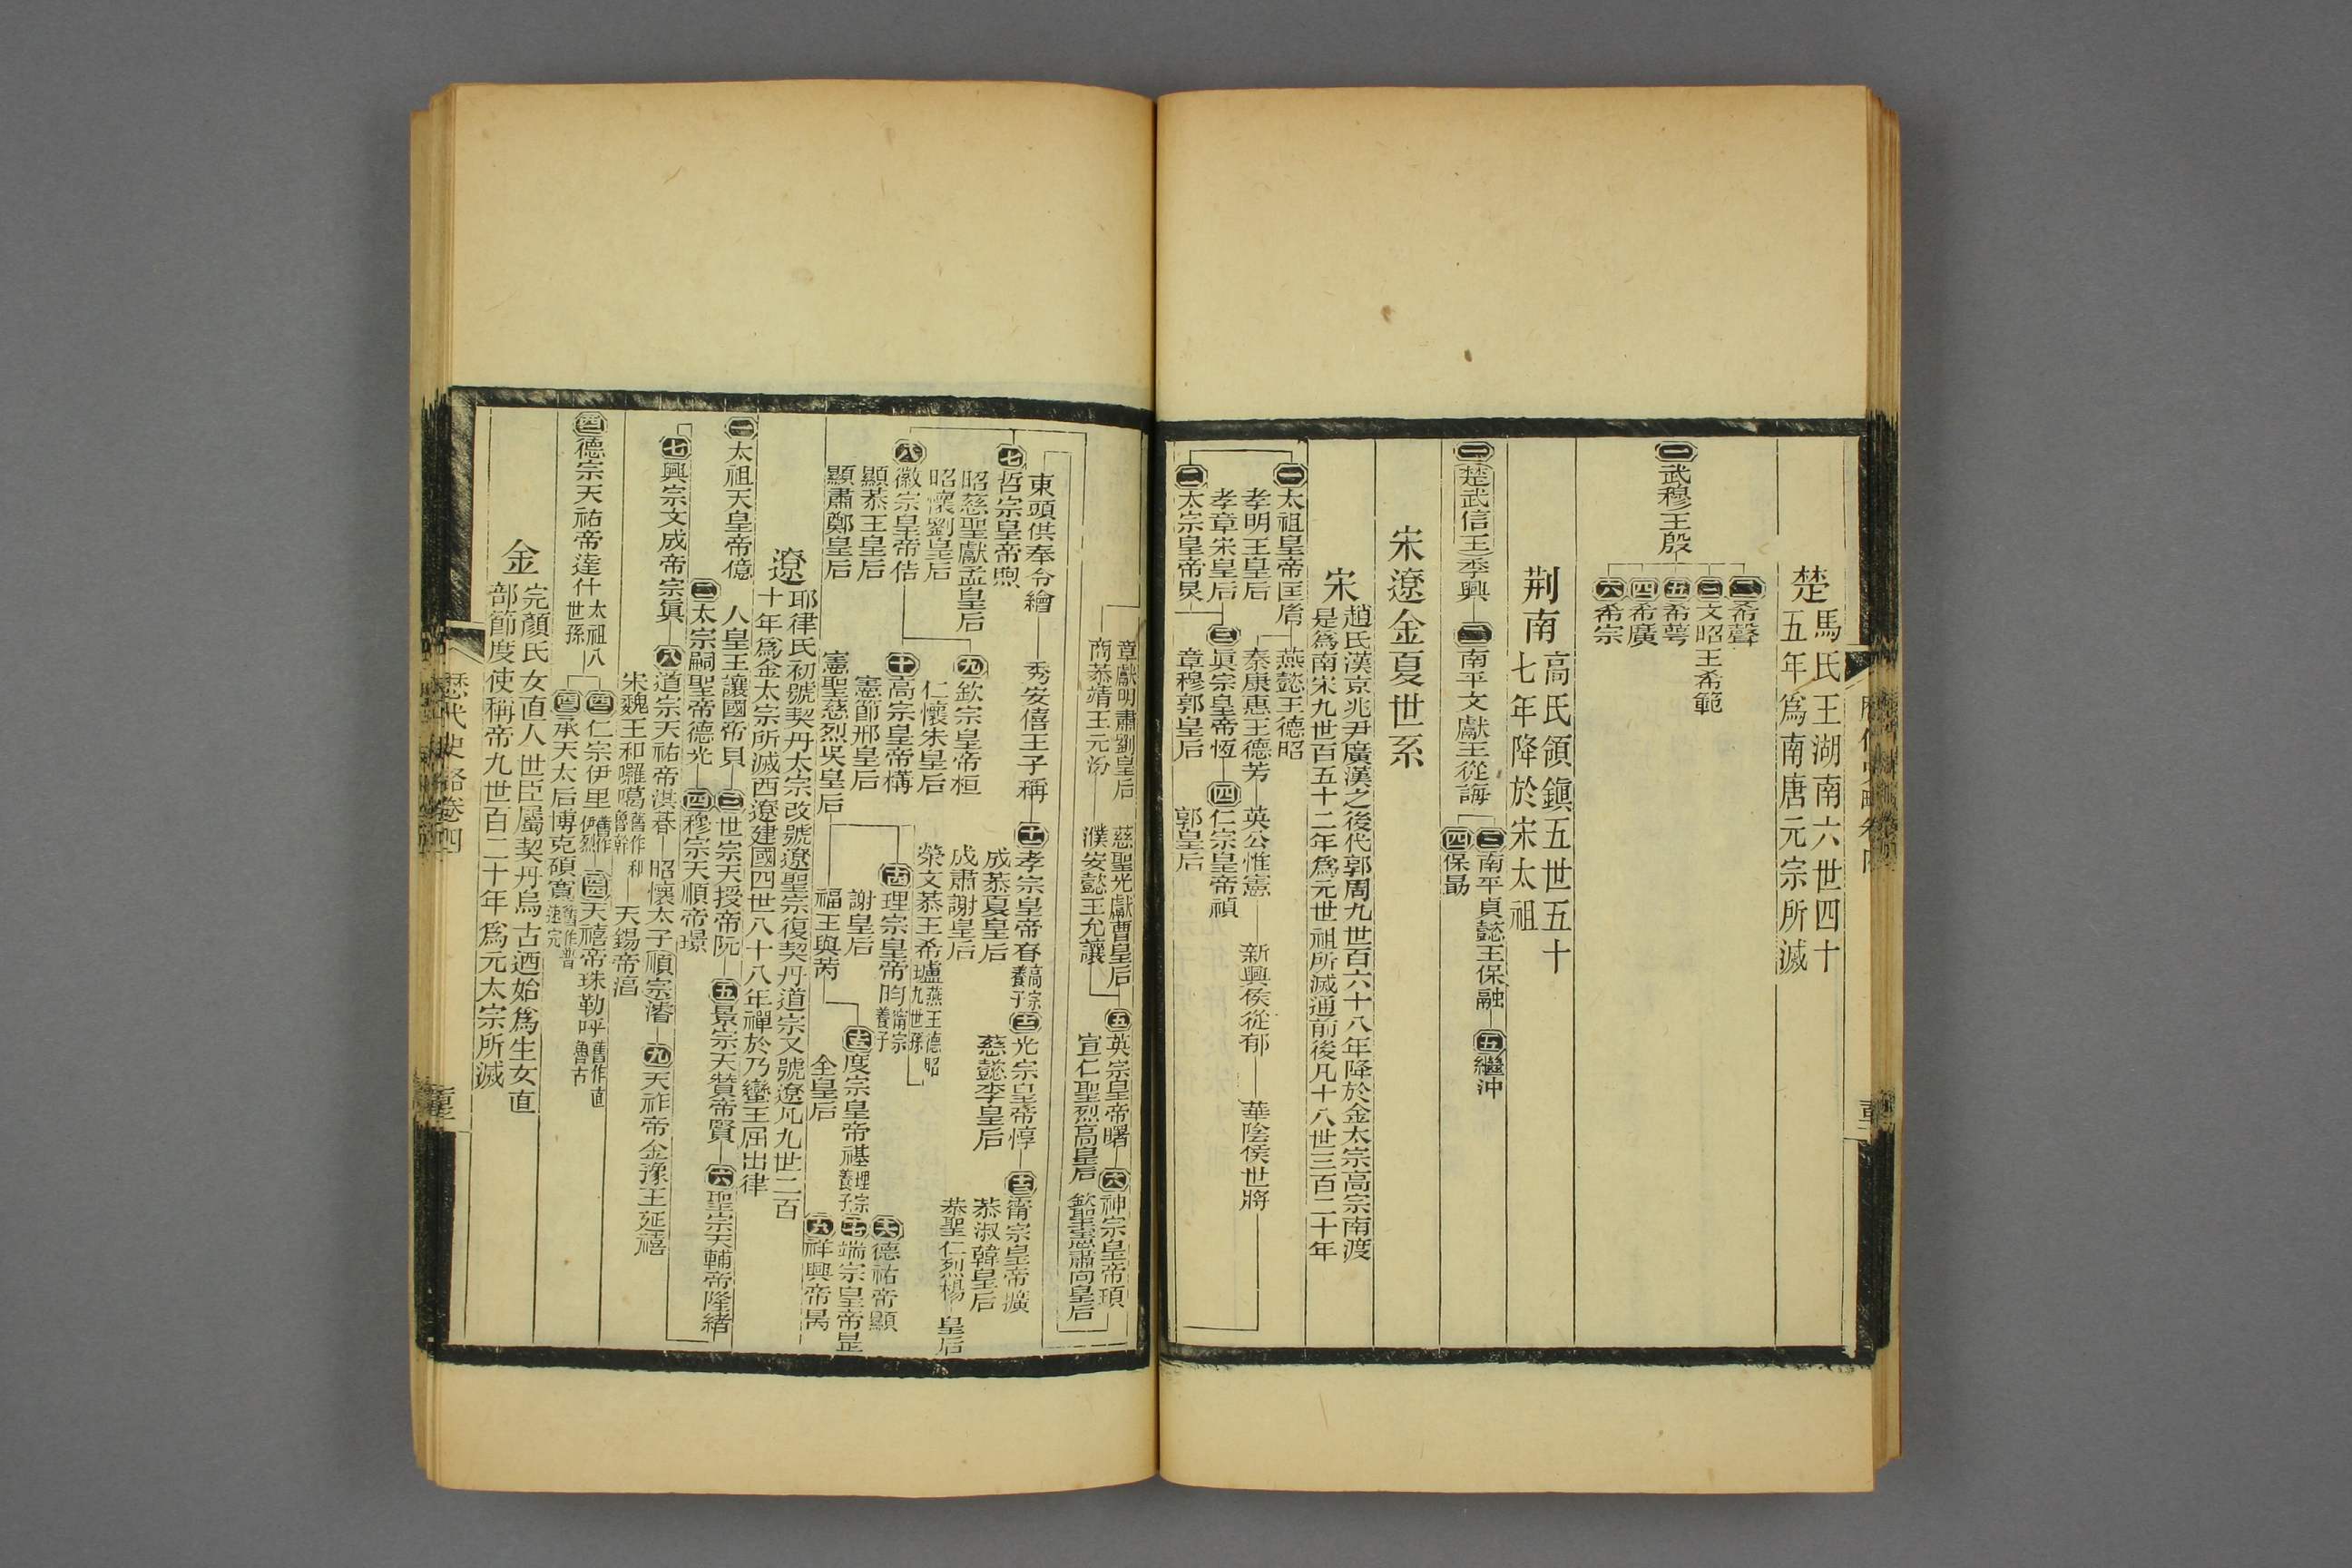 楚
馬氏王湖南六世四十
五年爲南唐元宗所滅
一武穆王殷
二希聲
三文昭王希範
五希萼
四希廣
六希宗
荆南
高氏領鎭五世五十
七年降於宋太祖
一楚武信王季興
二南平文獻王從誨
三南平貞懿王保融
五繼沖
四保勗
宋遼金夏世系
宋
趙氏漢京兆尹廣漢之後代郭周九世百六十八年降於金太宗高宗南渡
是爲南宋九世百五十二年爲元世祖所滅通前後凡十八世三百二十年
一太祖皇帝匡胤
燕懿王德昭
孝明王皇后
秦康惠王德芳
英公惟憲
新興侯從郁
華陰侯世將
孝章宋皇后
三眞宗皇帝恆
四仁宗皇帝禎
二太宗皇帝炅
章穆郭皇后
郭皇后
章獻明肅劉皇后
慈聖光獻曹皇后
五英宗皇帝曙
六神宗皇帝頊
商恭靖王元份
濮安懿王允讓
宣仁聖烈高皇后
欽聖憲肅向皇后
東頭供奉令繪
秀安僖王子稱
十一孝宗皇帝眘
高宗
養子
十二光宗皇帝惇
十三甯宗皇帝擴
七哲宗皇帝煦
成恭夏皇后
慈懿李皇后
恭淑韓皇后
昭慈聖獻孟皇后
九欽宗皇帝桓
成肅謝皇后
恭聖仁烈楊皇后
昭懷劉皇后
仁懷朱皇后
榮文恭王希瓐
燕王德昭
九世孫
八徽宗皇帝佶
十高宗皇帝構
十四理宗皇帝昀
甯宗
養子
十六德祐帝顯
顯恭王皇后
憲節邢皇后
謝皇后
十五度宗皇帝禥
理宗
養子
十七端宗皇帝昰
顯肅鄭皇后
憲聖慈烈吳皇后
福王與芮
全皇后
十八祥興帝昺
遼
耶律氏初號契丹太宗改號遼聖宗復契丹道宗又號遼凡九世二百
十年爲金太宗所滅西遼建國四世八十八年禪於乃蠻王屈出律
一太祖天皇帝億
人皇王讓國帝貝
三世宗天授帝阮
五景宗天贊帝賢
六聖宗天輔帝隆緒
二太宗嗣聖帝德光
四穆宗天順帝璟
七興宗文成帝宗眞
八道宗天祐帝淇
昭懷太子順宗濬
九天祚帝金豫王延禧
宋魏王和囉噶
舊作和
魯斡
天錫帝涪
德宗天祐帝達什
太祖八
世孫
仁宗伊里
舊作
伊烈
天禧帝珠勒呼
舊作直
魯古
承天太后博克碩寬
舊作普
速完
金
完顏氏女直人世臣屬契丹烏古迺始爲生女直
部節度使稱帝九世百二十年爲元太宗所滅
歷代史畧卷四